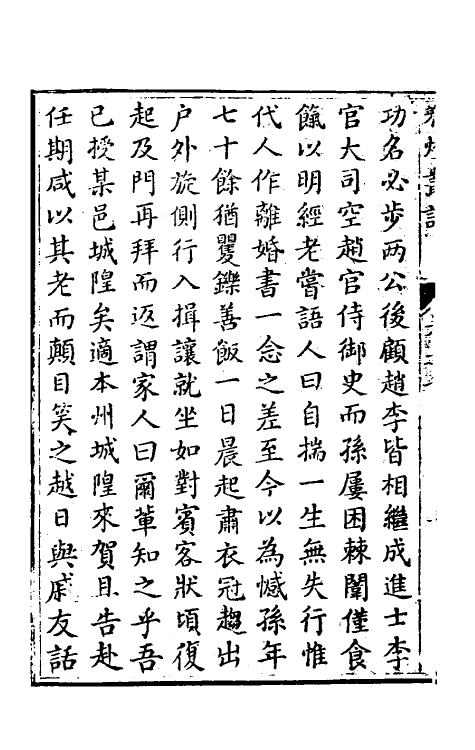 功名必步两公後顧趙李皆相繼成進士李
官大司空趙官侍御史而孫屢困棘闈僅食
餼以明經老嘗語人曰自揣一生無失行惟
代人作離婚書一念之差至今以為憾孫年
七十餘猶矍鑠善飯一日晨起肅衣冠趨出
户外旋側行入揖讓就坐如對賓客狀頃復
起及門再拜而返謂家人曰爾輩知之乎吾
已授某邑城隍矣適本州城隍來賀且告赴
任期咸以其老而顛目笑之越日與戚友話